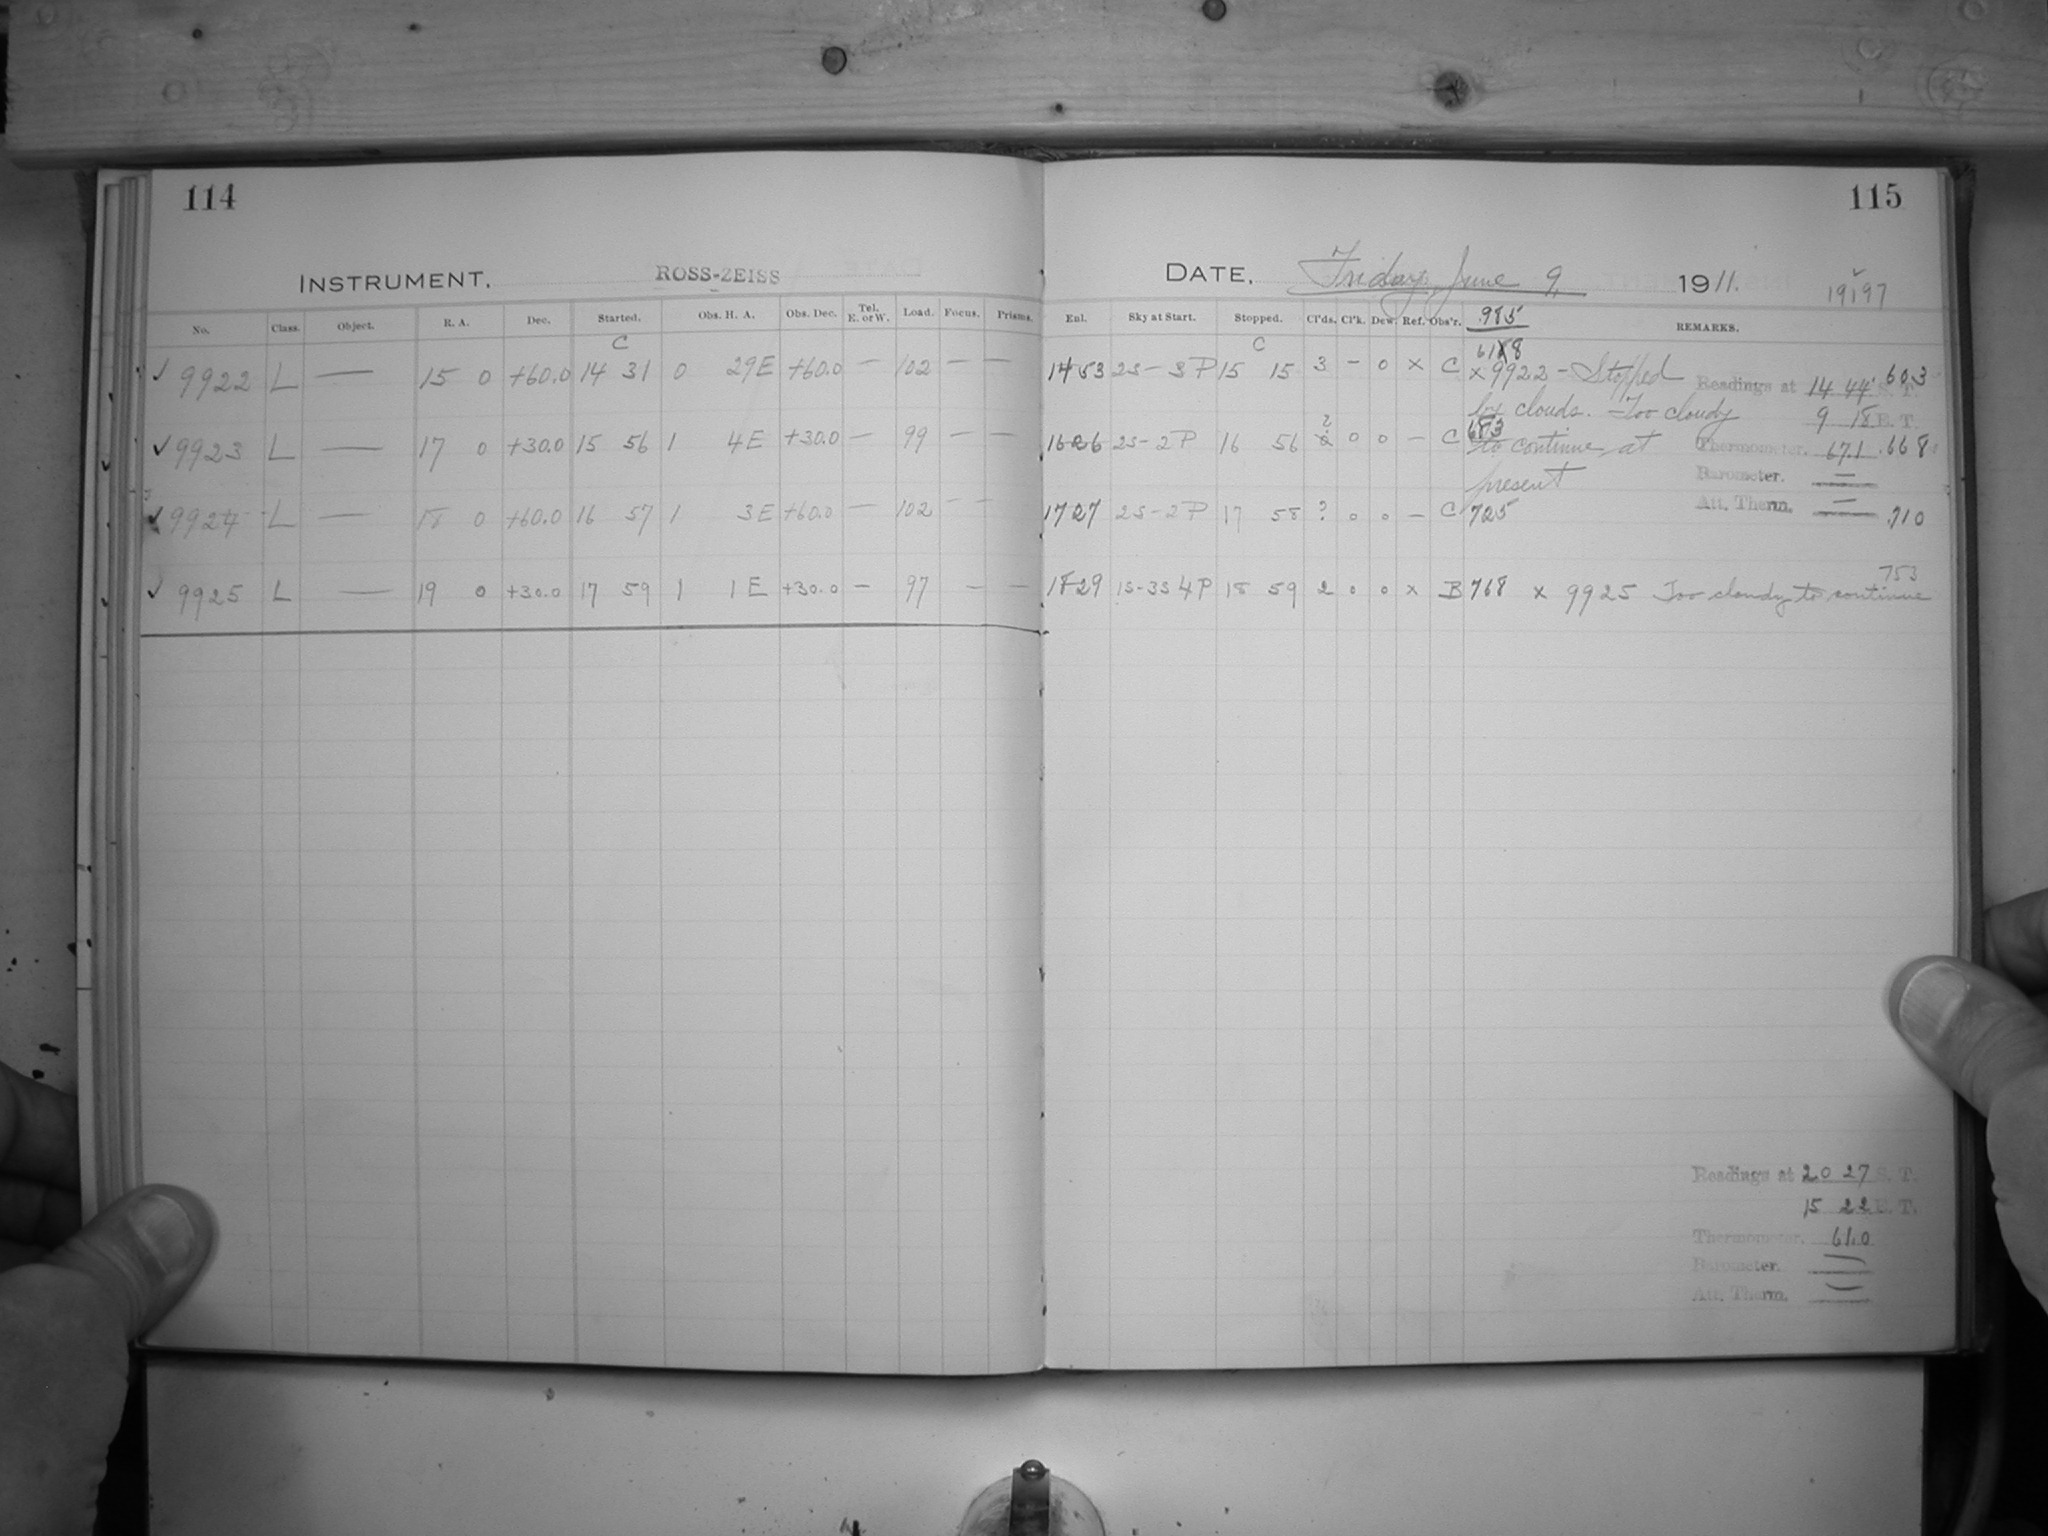 114
INSTRUMENT. ROSS-ZEISS
No. Class. Object. R. A. Dec. Started. Obs. H. A. Obs. Dec. Tel. E. or W. Load. Focus. Prisms.
C
✓ 9922 L — 15 0 +60.0 14 31 0 29E +60.0 — 102 — —
✓ 9923 L — 17 0 +30.0 15 56 1 4E +30.0 — 99 — —
✓ 9924 L — 18 0 +60.0 16 57 1 3E +60.0 — 102 — —
✓ 9925 L — 19 0 +30.0 17 59 1 1E +30.0 — 97 — —
115
DATE, Friday, June 9, 1911.
19197
Enl. Sky at Start. Stopped. Cl'ds. Cl'k. Dew. Ref. Obs'r. .985 REMARKS.
C
14 53 2S-3P 15 15 3 – 0 × C × 9922 - Stopped
by clouds. Too cloudy
16 26 2S-2P 16 56 ? 0 0 – C 683
to continue at
present
17 27 2S-2P 17 58 ? 0 0 – C 725
18 29 1S-3S 4P 18 59 2 0 0 × B 768 × 9925 Too cloudy to continue
Readings at 14 44 S. T. 603
9 18 E. T.
Thermometer. 67.1 .668
Barometer. —
Att. Therm. — .710
753
Readings at 20 27 S. T.
15 22 E. T.
Thermometer. 61.0
Barometer. —
Att. Therm. —